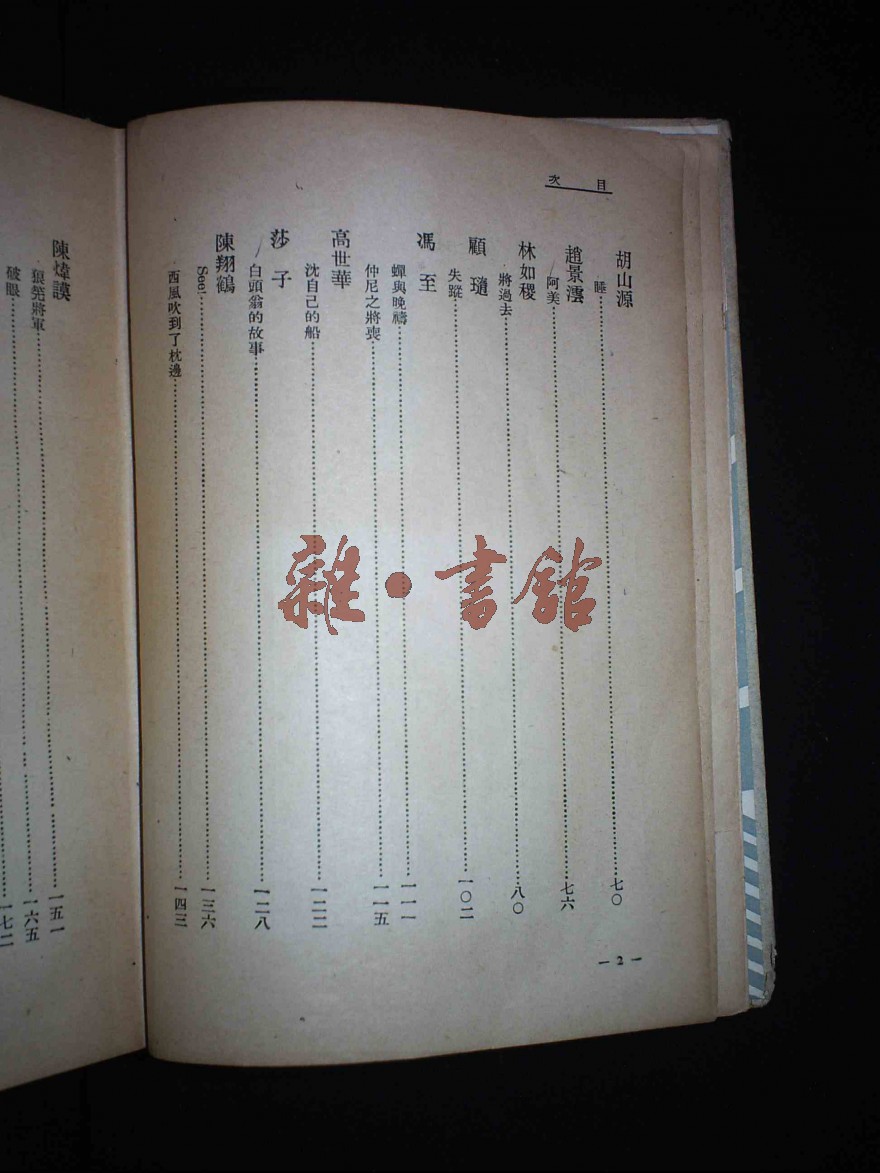 目次
胡山源
睡……七〇
趙景澐
阿美……七六
林如稷
將過去……八〇
顧瓍
失蹤……一〇二
馮至
蟬與晚禱……一一一
仲尼之將喪……一一五
高世華
沈自己的船……一二二
莎子
白頭翁的故事……一二八
陳翔鶴
See!……一三六
西風吹到了枕邊……一四三
— 2 —
陳煒謨
狼筅將軍……一五一
破眼……一六五
一七二
雜·書館